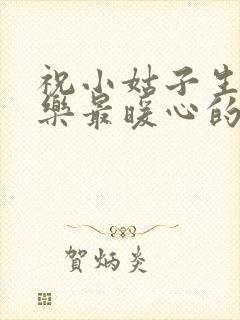 祝小姑子生
樂最暖心的
賀炳炎